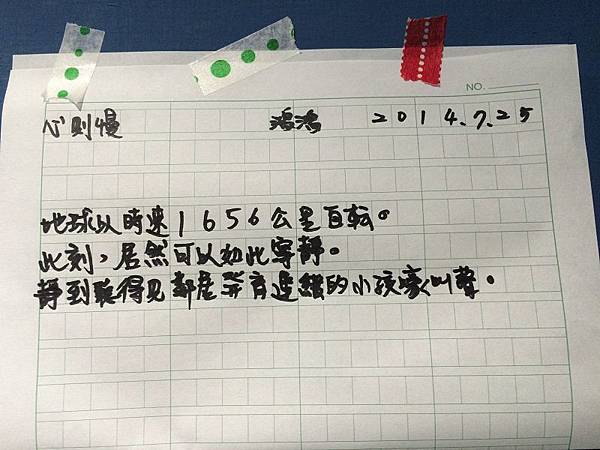 NO.
心則慢 鴻鴻 2014.7.25
地球以時速1656公里自転。
此刻，居然可以如此寧靜。
靜到聽得见鄰座的小孩嚎叫聲。